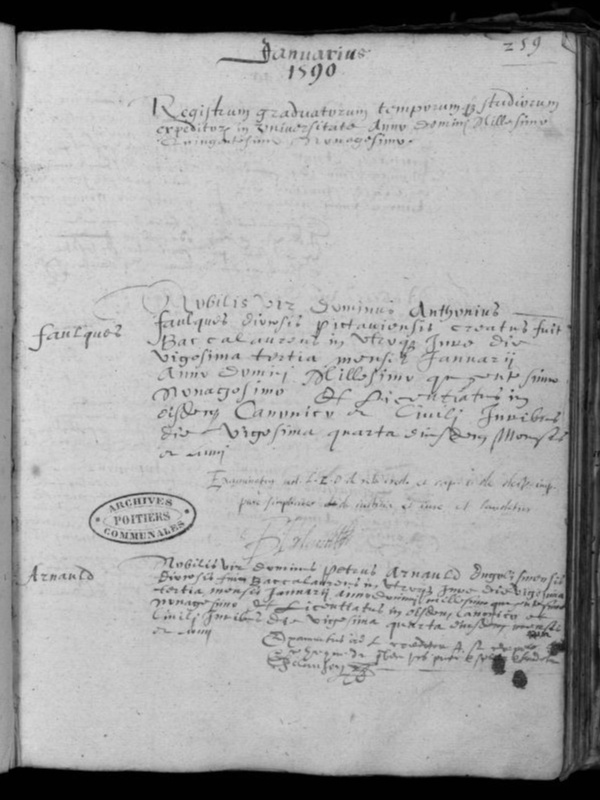 259
Januarius
1590
Registrum graduatorum temporumq; studiorum
expeditor in Universitate Anno Domini Millesimo
Quingentesimo Nonagesimo.
faulques
Nobilis vir Dominus Anthonius
faulques diocesis Pictaviensis creatus fuit
Baccalaureus in utroq; Jure die
vigesima tertia mensis Januarij
Anno Domini Millesimo quingentesimo
Nonagesimo Et Licentiatus in
eisdem Canonico et Civili Juribus
die vigesima quarta eiusdem Mensis
et anni
Examinatus ad L. 2. D. de et
pure simpliciter de iustitia et iure et laudatus
ARCHIVES
POITIERS
COMMUNALES
Arnauld
Nobilis vir dominus Petrus Arnauld Engolismensis
diocesis fuit Baccalaureus in utroq; Jure die vigesima
tertia mensis Januarij anno domini millesimo quingentesimo
nonagesimo et Licentiatus in eisdem Canonico et
Civili Juribus die vigesima quarta eiusdem mensis
et anni
Examinatus ad L.